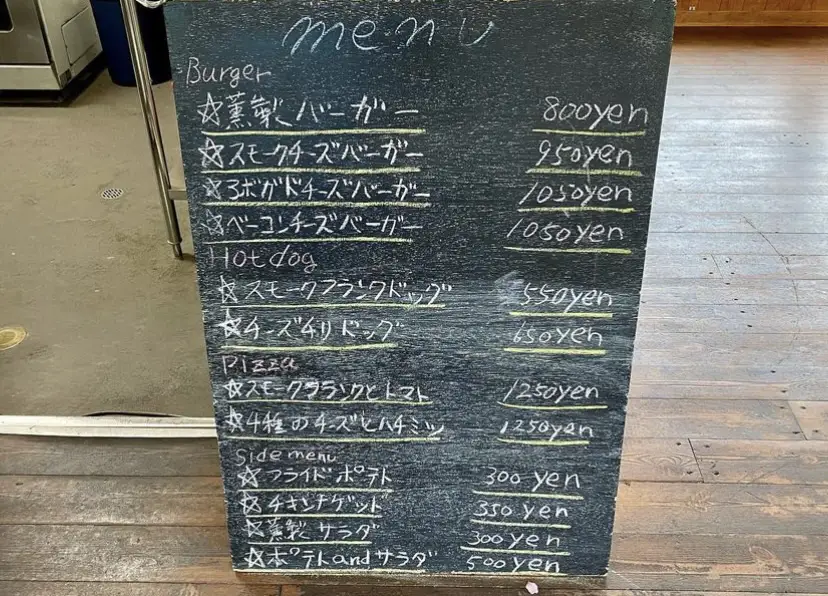 menu
Burger
☆燻製バーガー 800yen
☆スモークチーズバーガー 950yen
☆アボガドチーズバーガー 1050yen
☆ベーコンチーズバーガー 1050yen
Hot dog
☆スモークフランクドッグ 550yen
☆チーズチリドッグ 650yen
Pizza
☆スモークフランクとトマト 1250yen
☆4種のチーズとハチミツ 1250yen
Side menu
☆フライドポテト 300yen
☆チキンナゲット 350yen
☆燻製サラダ 300yen
☆ポテトandサラダ 500yen